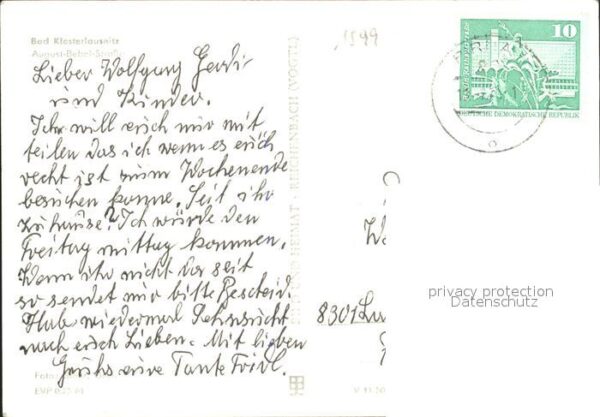 1599
Bad Klosterlausnitz
August-Bebel-Straße
Lieber Wolfgang Gerdi
und Kinder.
Ich will euch nur mit
teilen das ich wenn es euch
recht ist zum Wochenende
besuchen komme. Seit ihr
zuhause? Ich würde den
Freitag mittag kommen.
Wenn ihr nicht da seit
so sendet mir bitte Bescheid.
Hab wiedermal Sehnsucht
nach euch Lieben. Mit lieben
Grüßs eure Tante Fridl.
Foto
EVP
V 11
BILD UND HEIMAT · REICHENBACH (VOGTL)
10
DEUTSCHE DEMOKRATISCHE REPUBLIK
8301
privacy protection
Datenschutz